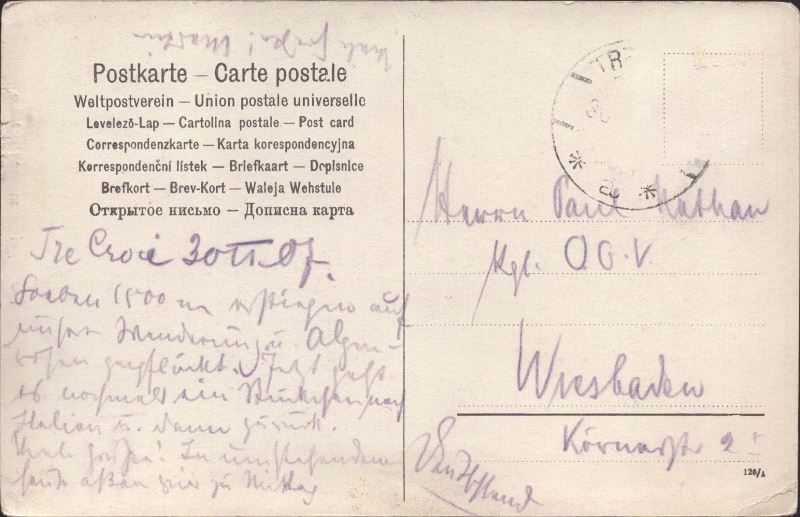 Postkarte — Carte postale
Weltpostverein — Union postale universelle
Levelező-Lap — Cartolina postale — Post card
Correspondenzkarte — Karta korespondencyjna
Korrespondenční lístek — Briefkaart — Dopisnice
Brefkort — Brev-Kort — Waleja Wehstule
Открытое письмо — Дописна карта
Tre Croci 30 07.
Soeben 1800 m auf
unsrer Wanderung Alpen-
rosen gepflückt. Jetzt geht
es nochmals ein Stückchen nach
Italien u. dann zurück.
Viele Grüße! In umstehendem
heute aßen wir zu Mittag
Viele Grüße! Martin
TR
Herrn Paul Nathan
Kgl. O.G.V.
Wiesbaden
Körnerstr 2
Deutschland
126/A